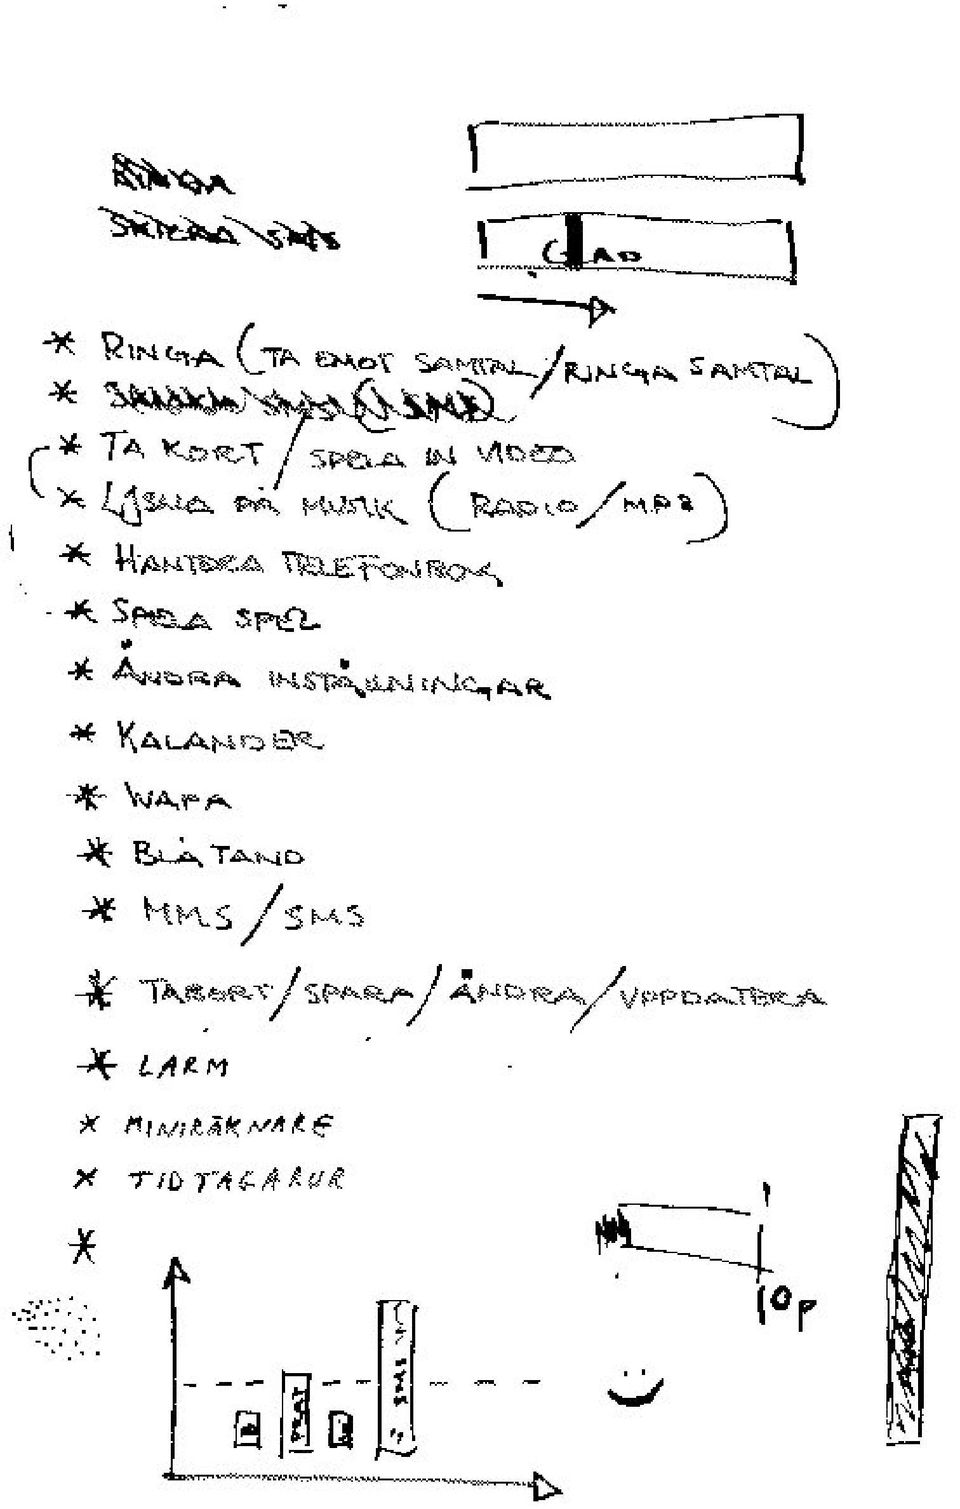 RINGA
SKICKA SMS
GLAD
* RINGA (TA EMOT SAMTAL/RINGA SAMTAL)
*
* TA KORT / SPELA IN VIDEO
* LYSSNA PÅ MUSIK (RADIO/MP3)
* HANTERA TELEFONBOK
* SPELA SPEL
* ÄNDRA INSTÄLLNINGAR
* KALANDER
* WAPA
* BLÅTAND
* MMS/SMS
* TABORT/SPARA/ÄNDRA/UPPDATERA
* LARM
* MINIRÄKNARE
* TIDTAGARUR
*
10p
PRAT
SMS